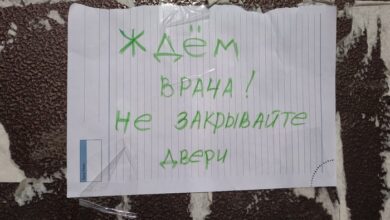 ЖДЁМ
ВРАЧА!
НЕ ЗАКРЫВАЙТЕ
ДВЕРИ